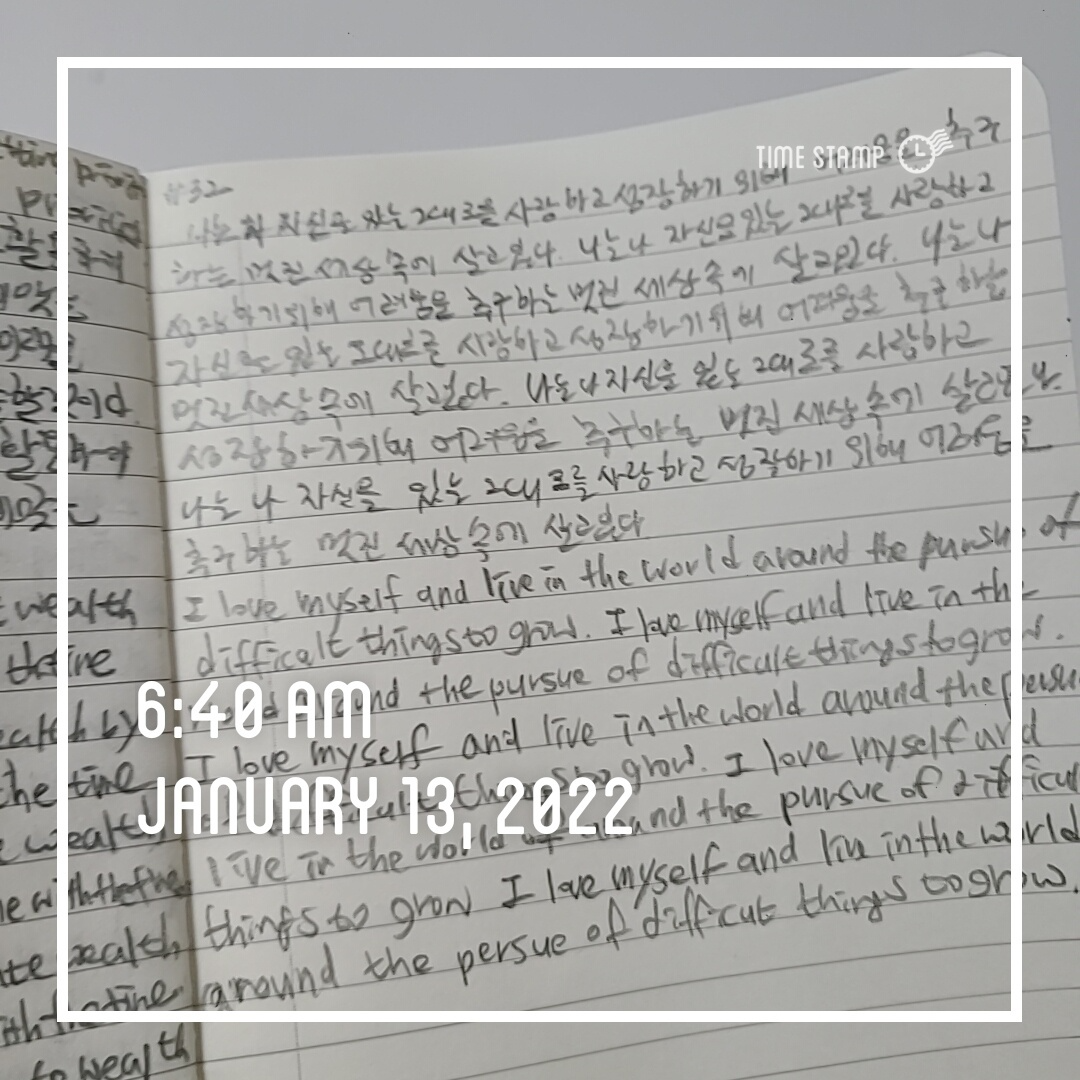 TIME STAMP
#32
나는 나 자신을 있는 그대로를 사랑하고 성장하기 위해 추구
하는 멋진 세상 속에 살고있다. 나는 나 자신을 있는 그대로를 사랑하고
성장하기위해 어려움을 추구하는 멋진 세상속에 살고있다. 나는 나
자신을 있는 그대로를 사랑하고 성장하기위해 어려움을 추구하는
멋진세상속에 살고있다. 나는나자신을 있는 그대로를 사랑하고
성장하기위해 어려움을 추구하는 멋진 세상속에
나는 나 자신을 있는 그대로를 사랑하고 성장하기 위해 어려움을
추구하는 멋진 세상속에 살고있다
I love myself and live in the world around the pursue of
difficult things to grow. I love myself and live in the
around the pursue of difficult things to grow.
I love myself and live in the world around the persue
things to grow. I love myself and
live in the world around the pursue of difficul
things to grow I love myself and live in the world
around the persue of difficut things to grow.
wealth
define
by
the fine
wealth
wealth
to wealth
6:40 AM
JANUARY 13, 2022